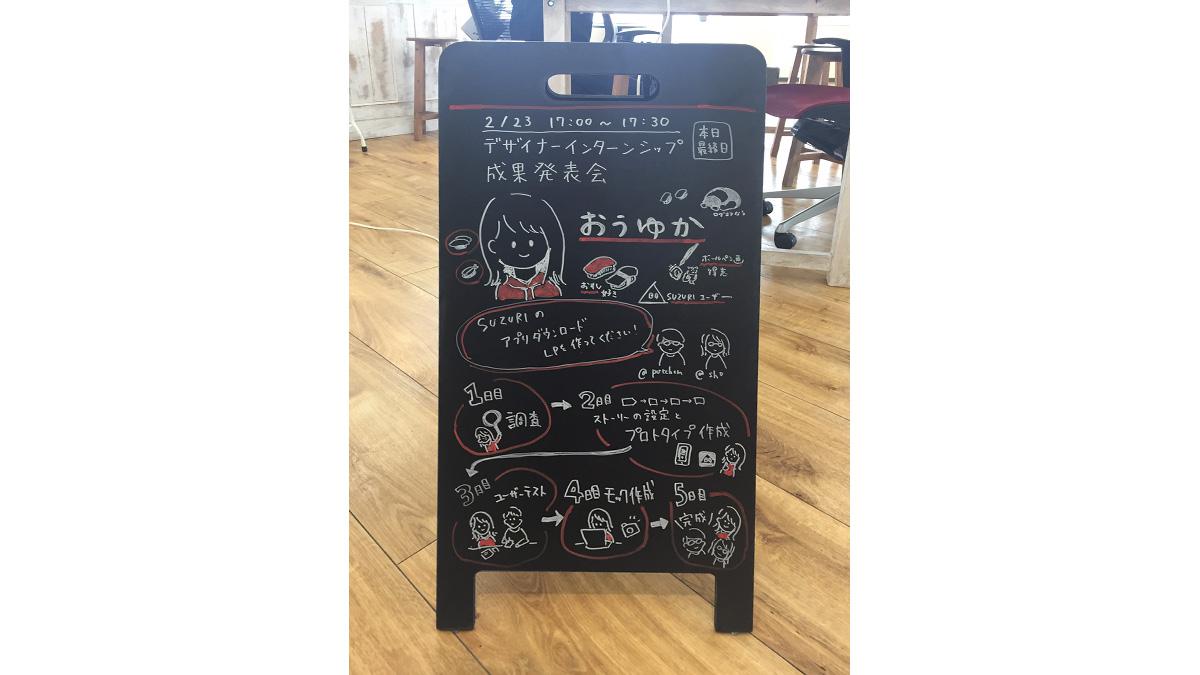 2/23 17:00〜17:30
デザイナーインターンシップ
成果発表会
本日
最終日
おうゆか
おすし
好き
ボールペン画
得意
SUZURIユーザー
SUZURIの
アプリダウンロード
LPを作ってください!
@putchom
@sho
1日目
調査
2日目
ストーリーの設定と
プロトタイプ作成
3日目
ユーザーテスト
4日目
モック作成
5日目
\完成/